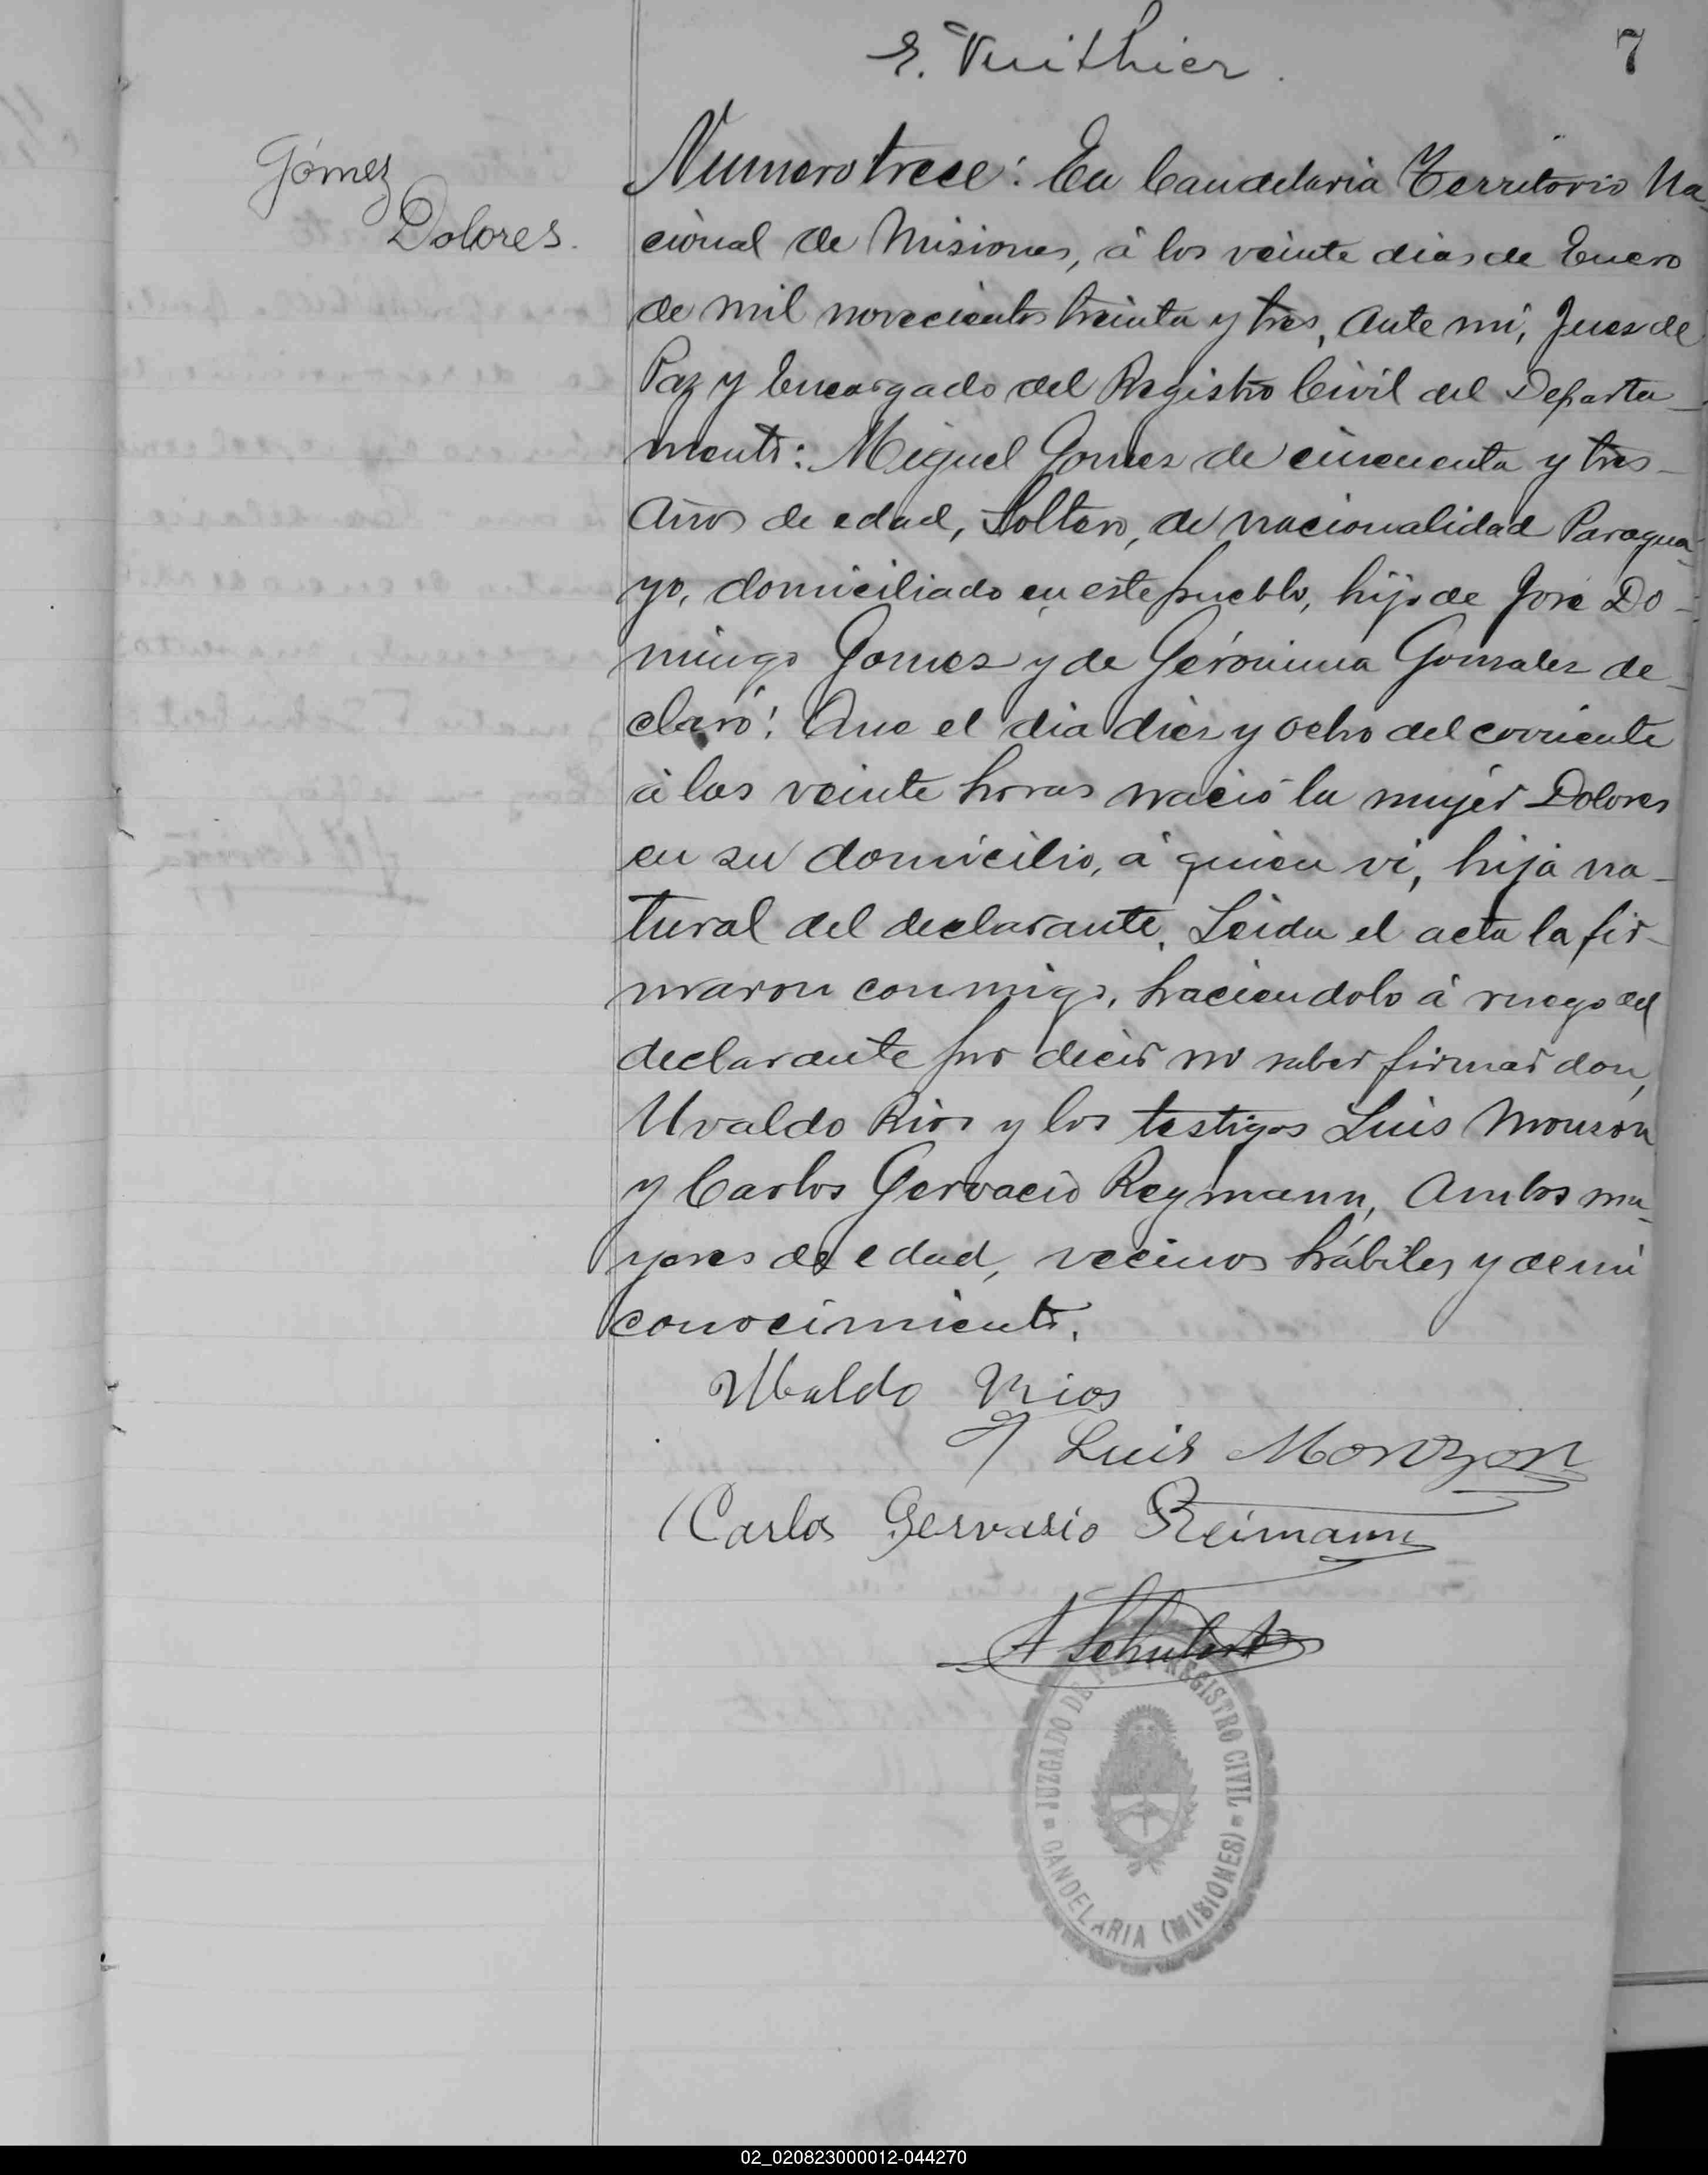 E. Vuithier.
7
Gómez
Dolores.
Numero trece: En Candelaria Territorio Na-
cional de Misiones, á los veinte dias de Enero
de mil novecientos treinta y tres, ante mi, Juez de
Paz y Encargado del Registro Civil del Departa-
mento: Miguel Gomez de cincuenta y tres
años de edad, Soltero, de nacionalidad Paragua-
yo, domiciliado en este pueblo, hijo de José Do-
mingo Gomez y de Gerónima Gonsalez de-
claró: Que el dia diez y ocho del corriente
á las veinte horas nació la mujer Dolores
en su domicilio, á quien vi, hija na-
tural del declarante. Leida el acta la fir-
maron conmigo, haciendolo á ruego del
declarante por decir no saber firmar don,
Uvaldo Rios y los testigos Luis Monsón
y Carlos Gervacio Reymann, Ambos ma-
yores de edad, vecinos hábiles y de mi
conocimiento.
Ubaldo Rios
Luis Monzon
Carlos Gervasio Reimann
A Schubert
JUZGADO DE PAZ Y REGISTRO CIVIL
CANDELARIA (MISIONES)
02_020823000012-044270